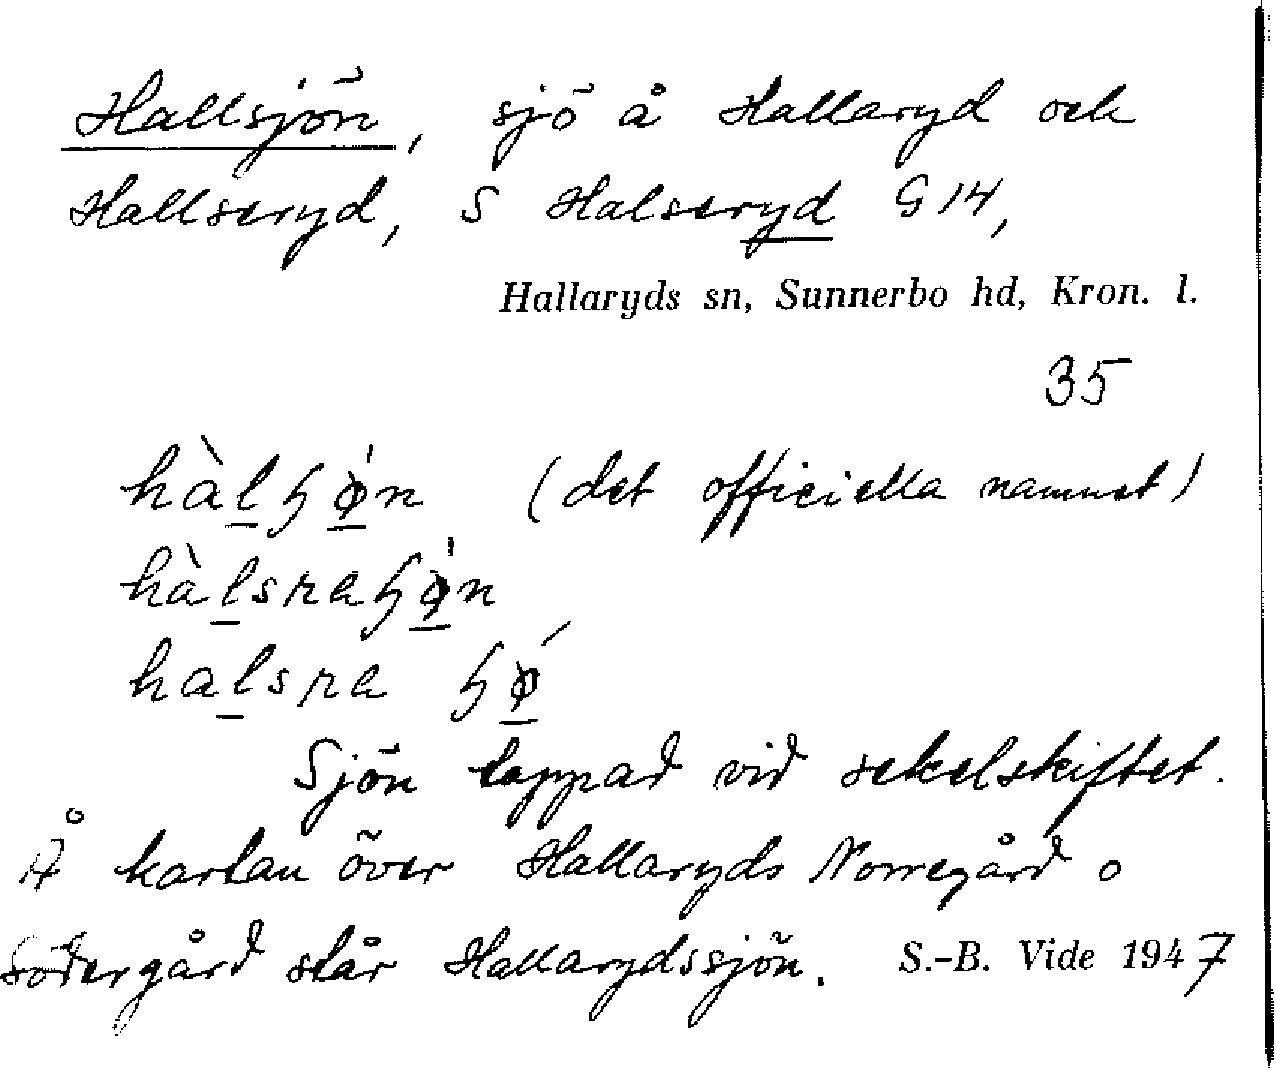 Hallsjön, sjö å Hallaryd och
Hallseryd, S Halseryd G 14,
Hallaryds sn, Sunnerbo hd, Kron. l.
35
hàlɧø̀n (det officiella namnet)
hàlsraɧø̀n
halsra ɧǿ
Sjön tappad vid sekelskiftet.
Å kartan över Hallaryds Norregård o
Södergård står Hallarydssjön. S.-B. Vide 1947